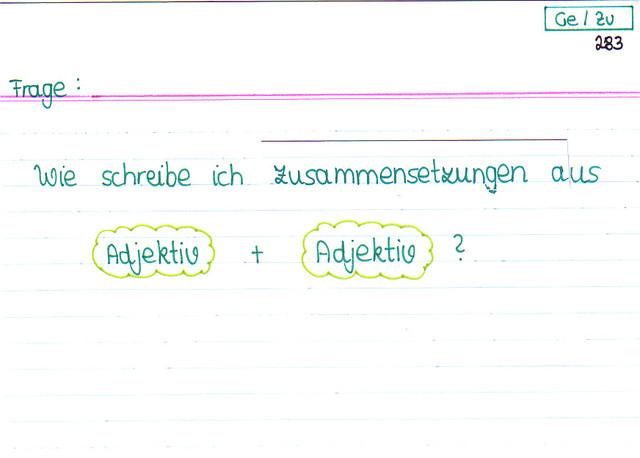 Ge / Zu
283
Frage:
Wie schreibe ich Zusammensetzungen aus
Adjektiv + Adjektiv ?